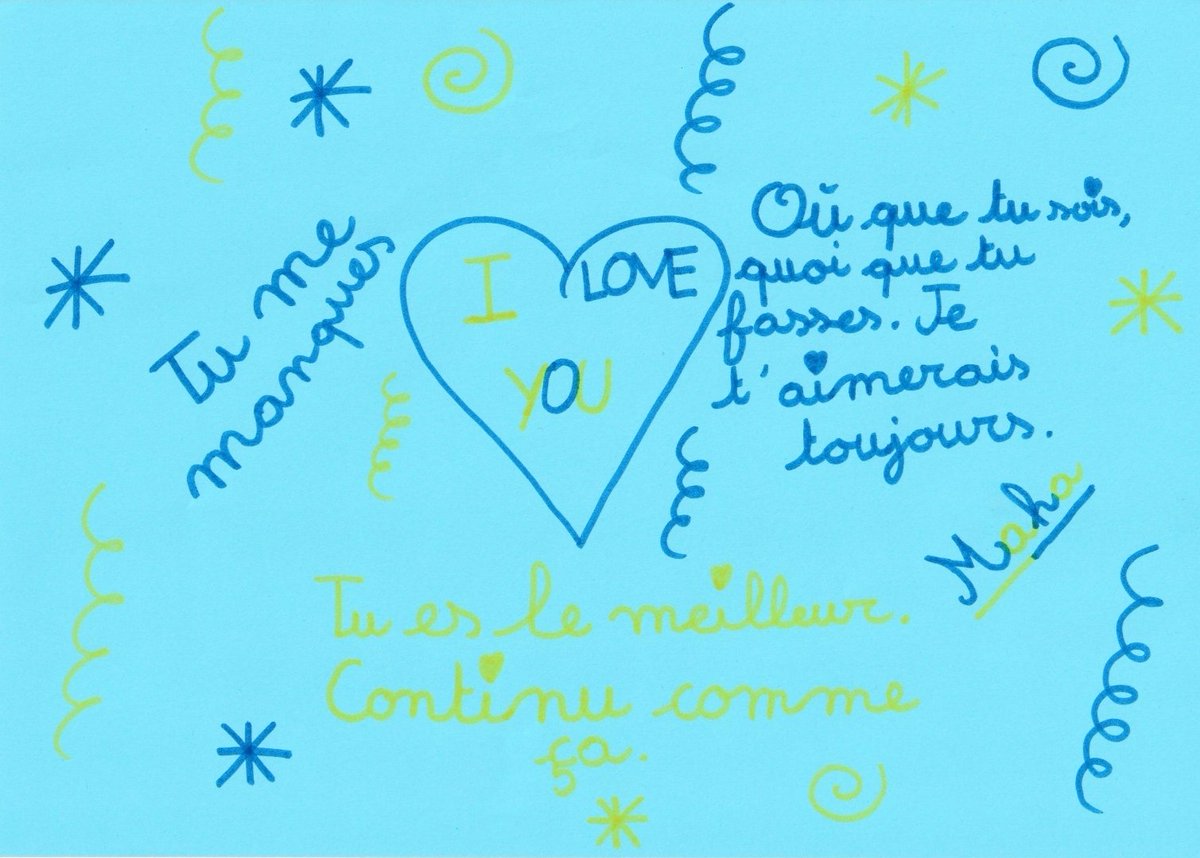 Tu me
manques
I LOVE
YOU
Où que tu sois,
quoi que tu
fasses. Je
t'aimerais
toujours.
Maha
Tu es le meilleur.
Continu comme
ça.